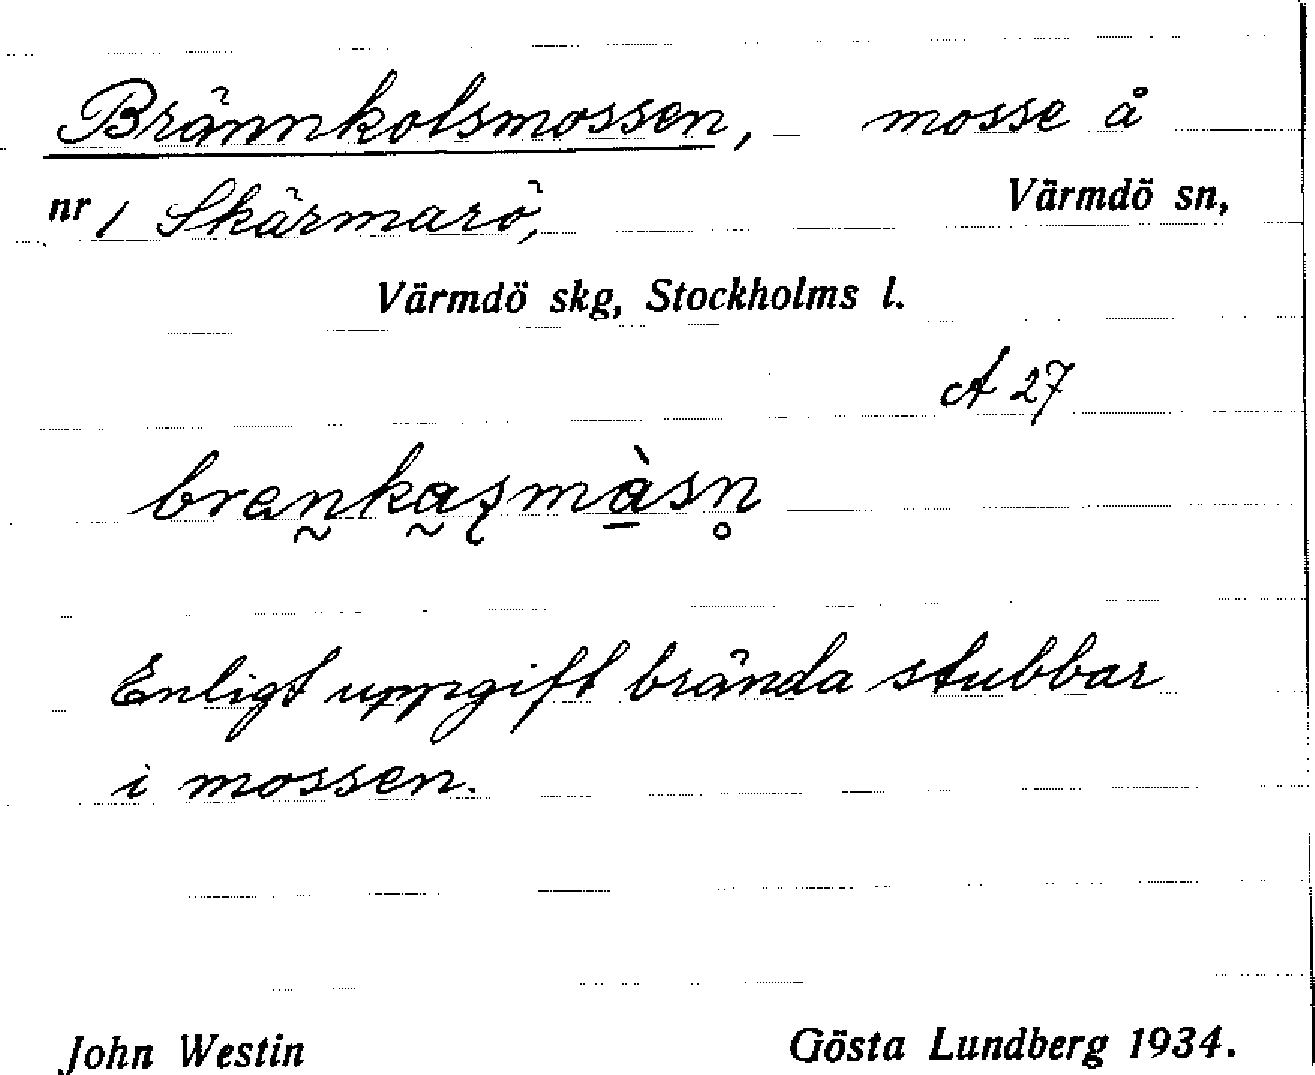 Brännkolsmossen, mosse å
nr 1 Skärmarö, Värmdö sn,
Värmdö skg, Stockholms l.
A 27
Enligt uppgift brända stubbar
i mossen.
John Westin Gösta Lundberg 1934.